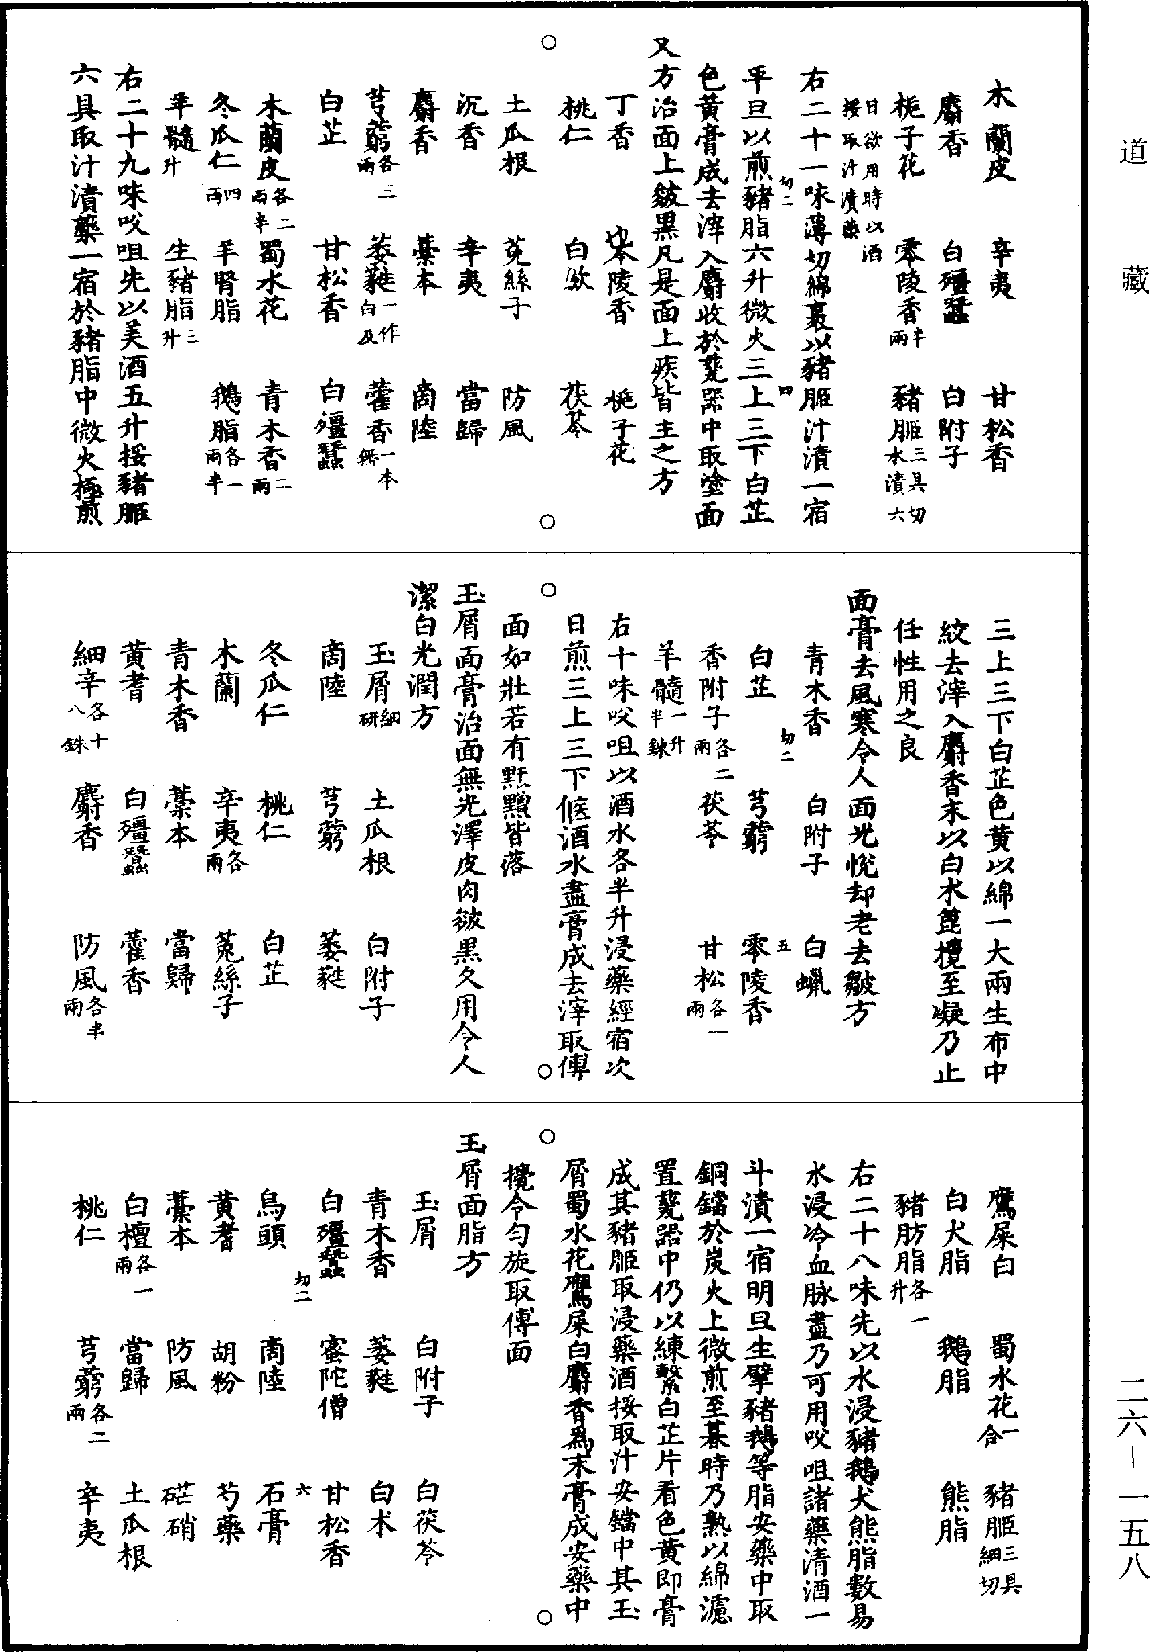 道藏
木蘭皮 辛夷 甘松香
麝香 白殭蠶 白附子
梔子花 零陵香半兩 豬胰三具切水漬六
日欲用時以酒挼取汁漬藥
右二十一味薄切綿裹以豬胰汁漬一宿
平旦以煎豬脂六升微火三上三下白芷
色黃膏成去滓入麝收於甆器中取塗面
又方治面上皺黑凡是面上疾皆主之方
丁香 零陵香 梔子花
桃仁 白斂 茯苓
土瓜根 菟絲子 防風
沉香 辛夷 當歸
麝香 藁本 商陸
芎藭各三兩 萎蕤一作白及 藿香一本無
白芷 甘松香 白殭蠶
木蘭皮各二兩半 蜀水花 青木香二兩
冬瓜仁四兩 羊腎脂 鵝脂各一兩半
羊髓升 生豬脂三升
右二十九味㕮咀先以美酒五升挼豬胰
六具取汁漬藥一宿於豬脂中微火極煎
三上三下白芷色黃以綿一大兩生布中
紋去滓入麝香末以白木篦攪至凝乃止
任性用之良
面膏去風寒令人面光悅却老去皺方
青木香 白附子 白蠟
白芷 芎藭 零陵香
香附子各二兩 茯苓 甘松各一兩
羊髓一升半鍊
右十味㕮咀以酒水各半升浸藥經宿次
日煎三上三下候酒水盡膏成去滓取傅
面如壯若有䵟䵴皆落
玉屑面膏治面無光澤皮肉皺黑久用令人
潔白光潤方
玉屑細研 土瓜根 白附子
商陸 芎藭 萎蕤
冬瓜仁 桃仁 白芷
木蘭 辛夷各兩 菟絲子
青木香 藁本 當歸
黃耆 白殭蠶 藿香
細辛各十八銖 麝香 防風各半兩
鷹屎白 蜀水花一合 豬胰三具細切
白犬脂 鵝脂 熊脂
豬肪脂各一升
右二十八味先以水浸豬鵝犬熊脂數易
水浸冷血脉盡乃可用㕮咀諸藥清酒一
斗漬一宿明旦生擘豬鵝等脂安藥中取
銅鐺於炭火上微煎至暮時乃熟以綿濾
置甆器中仍以練繫白芷片看色黃即膏
成其豬胰取浸藥酒挼取汁安鐺中其玉
屑蜀水花鷹屎白麝香為末膏成安藥中
攪令勻旋取傅面
玉屑面脂方
玉屑 白附子 白茯苓
青木香 萎蕤 白朮
白殭蠶 蜜陀僧 甘松香
烏頭 商陸 石膏
黃耆 胡粉 芍藥
藁本 防風 芒硝
白檀各一兩 當歸 土瓜根
桃仁 芎藭各二兩 辛夷
二六—一五八